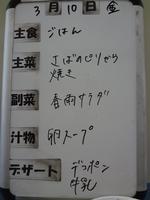 3月10日金
主食 ごはん
主菜 さばのピリから
焼き
副菜 春雨サラダ
汁物 卵スープ
デザート デコポン
牛乳